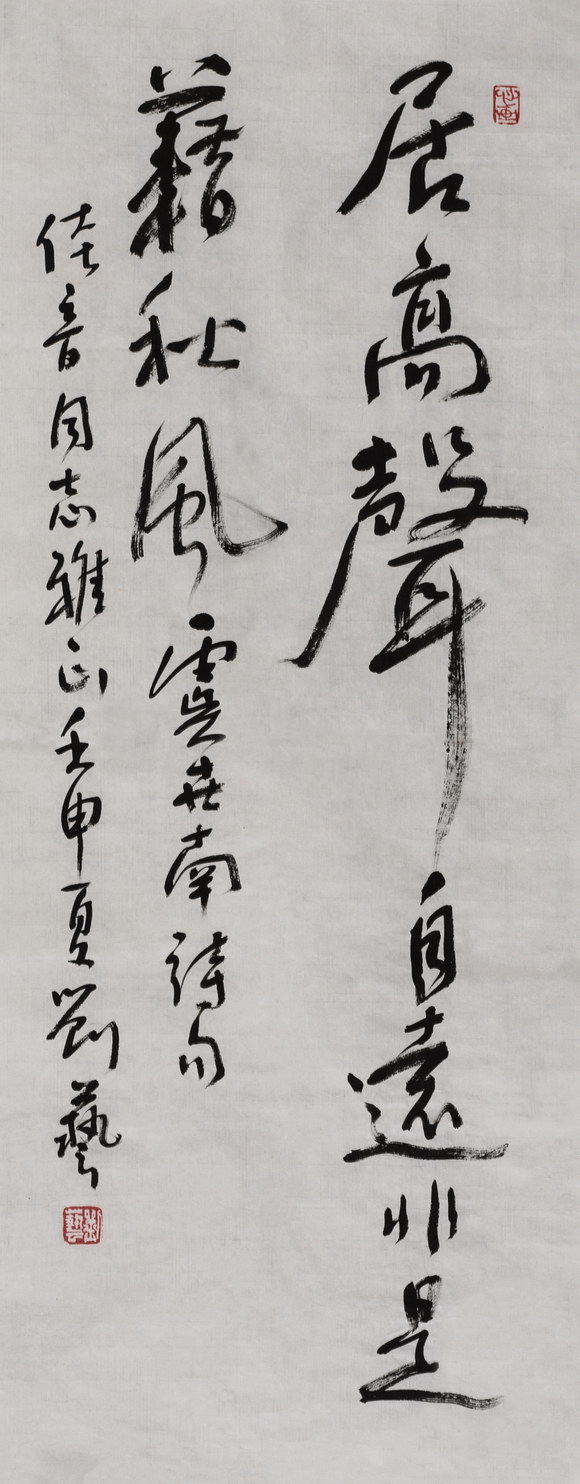 居高聲自遠非是
藉秋風 虞世南詩句
佳音同志雅正壬申夏劉藝
劉藝